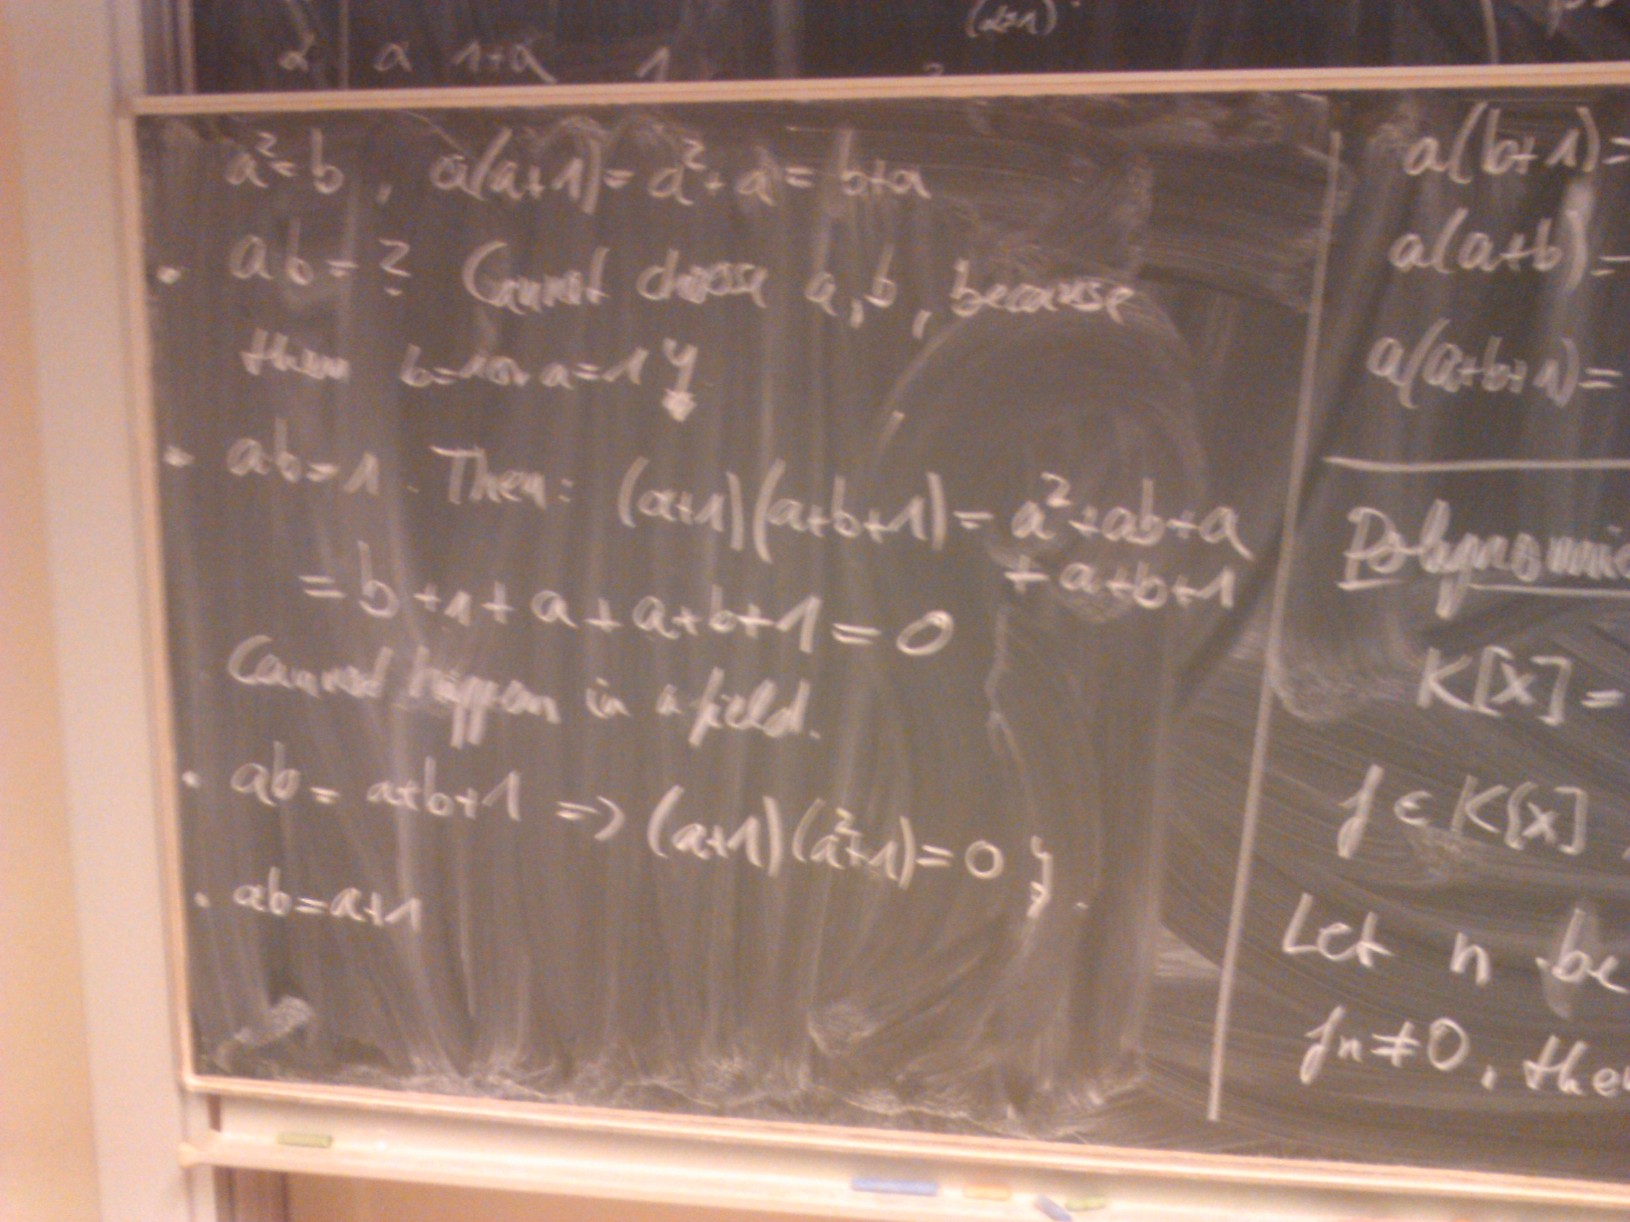 (α+1)
α α 1+α 1
a²=b, a(a+1)=a²+a=b+a
• ab=? Cannot choose a,b, because
then b=1 or a=1
• ab=1. Then: (a+1)(a+b+1)=a²+ab+a
+a+b+1
=b+1+a+a+b+1=0
Cannot happen in a field.
• ab=a+b+1 => (a+1)(a²+1)=0
• ab=a+1
a(b+1)=
a(a+b)=
a(a+b+1)=
K[x]=
f∈K[x],
Let n be
fn≠0, the